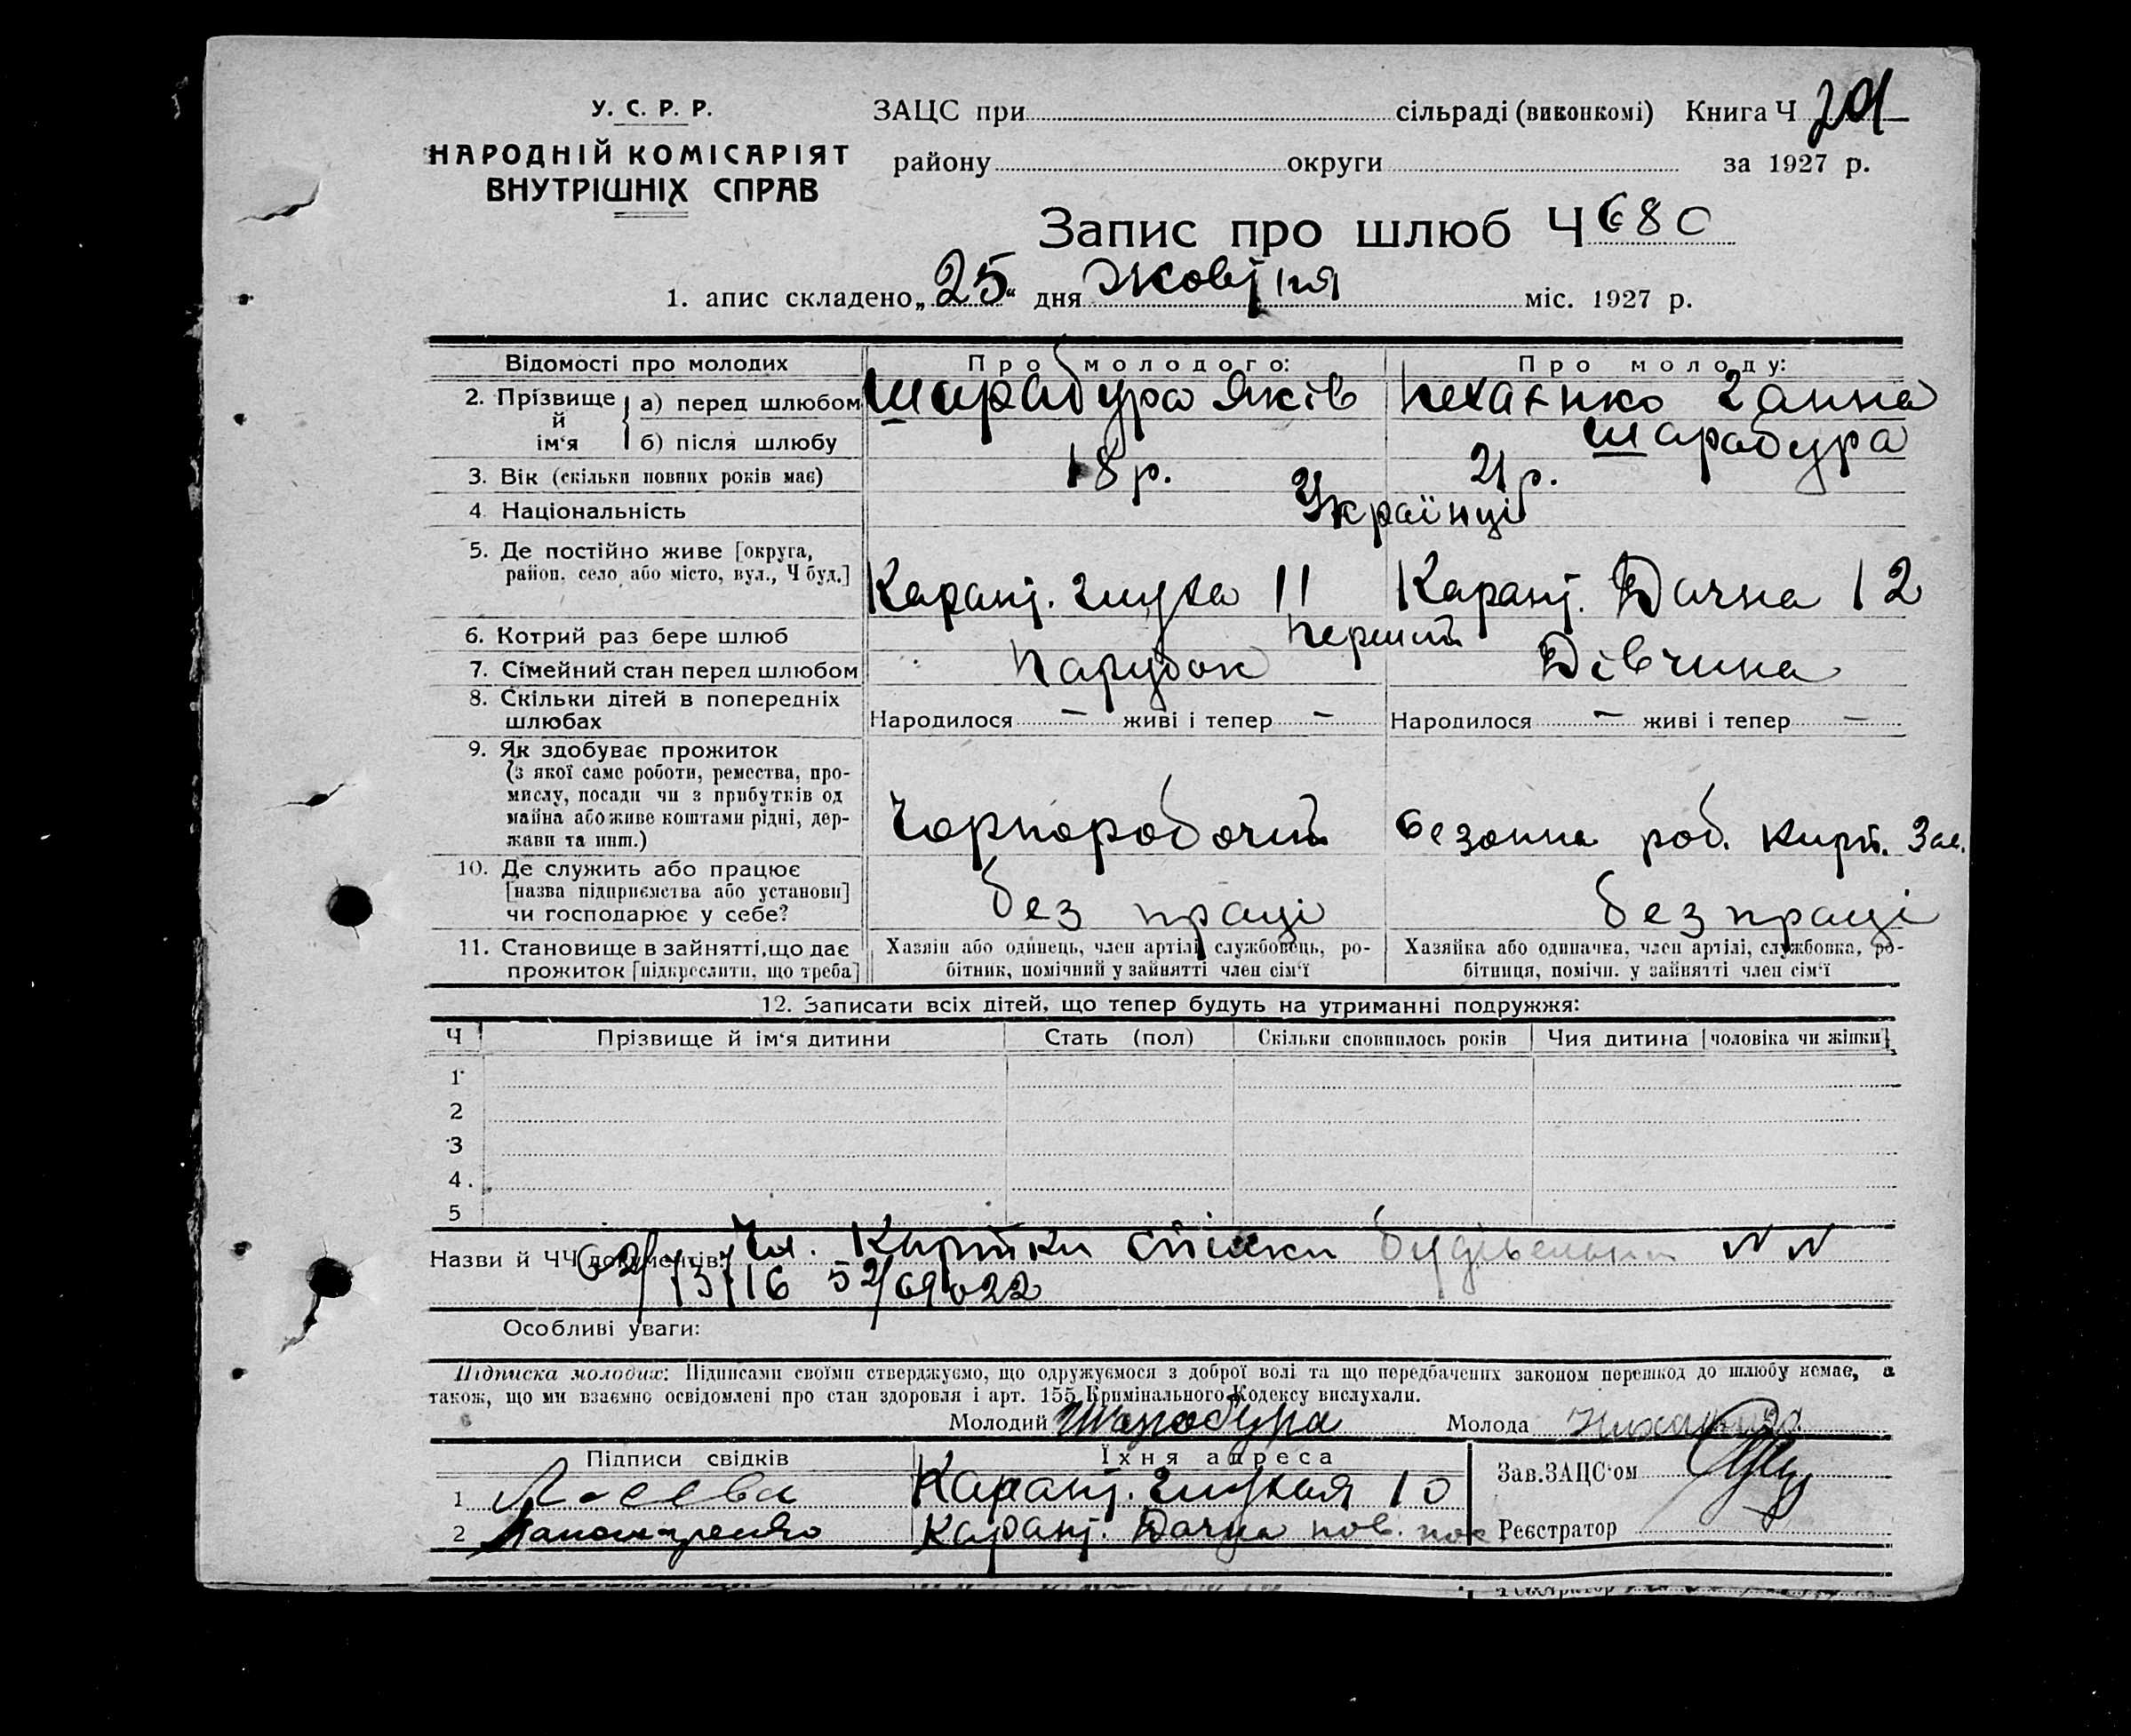 У. С. Р. Р.
НАРОДНІЙ КОМІСАРІЯТ
ВНУТРІШНІХ СПРАВ
ЗАЦС при сільраді (виконкомі) Книга Ч
району округи за 1927 р.
Запис про шлюб Ч 680
1. апис складено „25“ дня Жовтня міс. 1927 р.
Відомості про молодих Про молодого: Про молоду:
2. Прізвище й ім'я
а) перед шлюбом Шарабура Яків Ганна
б) після шлюбу Шарабура
3. Вік (скільки повних років має) 18 р. 21 р.
4 Національність Українці
5. Де постійно живе [округа, район, село або місто, вул., Ч буд.] Карант. 11 Карант. Дачна 12
6. Котрий раз бере шлюб Перший
7. Сімейний стан перед шлюбом Парубок Дівчина
8. Скільки дітей в попередніх шлюбах Народилося — живі і тепер — Народилося — живі і тепер —
9. Як здобуває прожиток
(з якої саме роботи, ремества, про-
мислу, посади чи з прибутків од
майна або живе коштами рідні, дер-
жави та инш.)
Чорноробочий Сезонна роб. Зав.
10. Де служить або працює
[назва підприємства або установи]
чи господарює у себе?
без праці без праці
11. Становище в зайнятті, що дає
прожиток [підкреслити, що треба]
Хазяін або одинець, член артілі, службовець, ро-
бітник, помічний у зайнятті член сім'ї
Хазяйка або одиначка, член артілі, службовка, ро-
бітниця, помічн. у зайнятті член сім'ї
12. Записати всіх дітей, що тепер будуть на утриманні подружжя:
Ч Прізвище й ім'я дитини Стать (пол) Скільки сповнилось років Чия дитина [чоловіка чи жінки]
1
2
3
4.
5
Назви й ЧЧ документів: Чл. Картки спілки будівельник NN
52/69022
Особливі уваги:
Підписка молодих: Підписами своїми стверджуємо, що одружуємося з доброї волі та що передбачених законом перешкод до шлюбу немає, а
також, що ми взаємно освідомлені про стан здоровля і арт. 155 Кримінального Кодексу вислухали.
Молодий Шарабура Молода
Підписи свідків Їхня адреса
Зав.ЗАЦС'ом
1 Карант. 10
2 Пономаренко Карант. Дачна пов. пос
Реєстратор